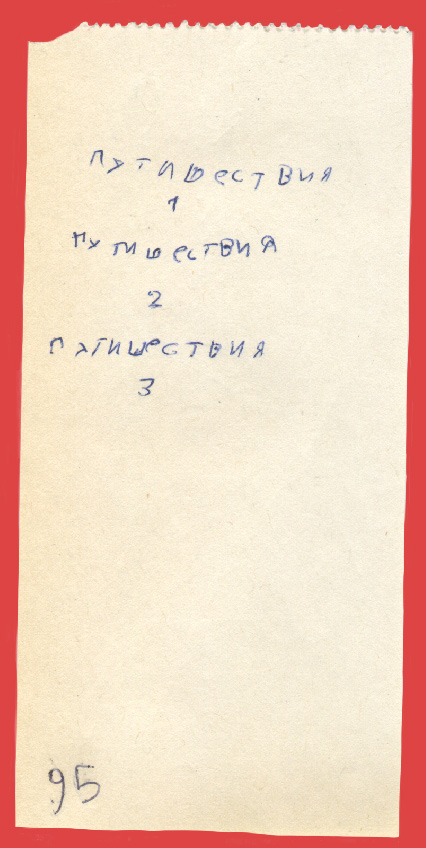 Путишествия
1
Путишествия
2
Путишествия
3
95